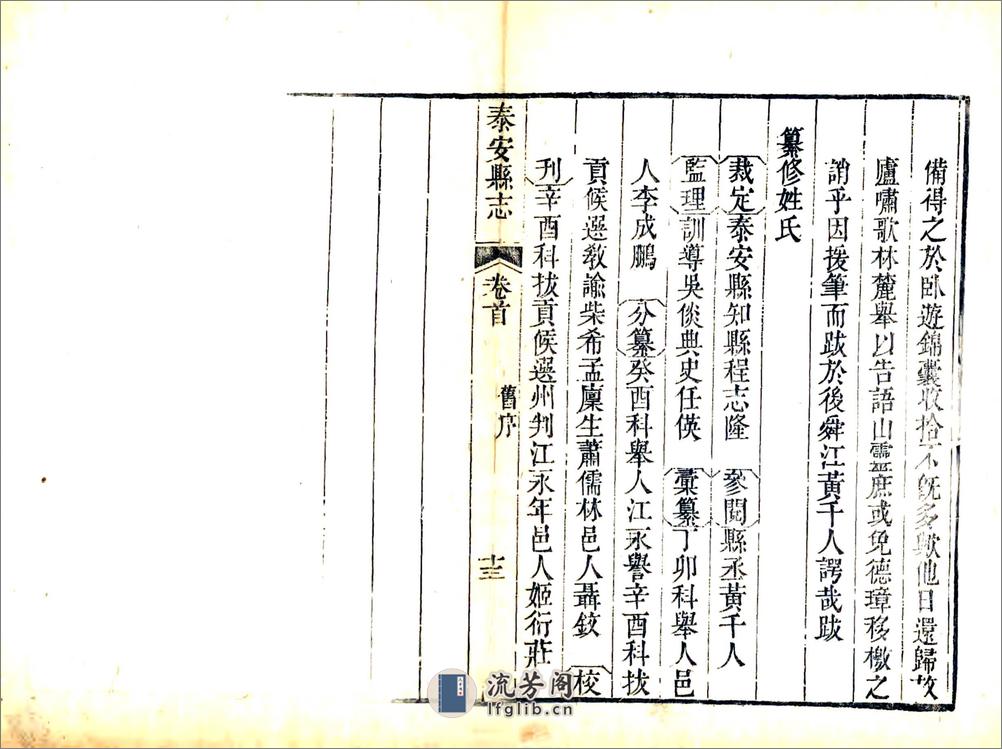 備得之於臥遊錦囊收拾不旣多歟他日還歸故
廬嘯歌林麓舉以告語山靈庶或免德璋移檄之
誚乎因援筆而跋於後舜江黃千人諤哉跋
纂修姓氏
裁定泰安縣知縣程志隆 參閱縣丞黃千人
監理訓導吳倓典史任倓 彙纂丁卯科舉人邑
人李成鵬 分纂癸酉科舉人江永譽辛酉科拔
貢候選教諭柴希孟廩生蕭儒林邑人聶鈫 校
刋辛酉科拔貢候選州判江永年邑人姬衍莊
泰安縣志 卷首 舊序 十三
流芳阁
lfglib.cn